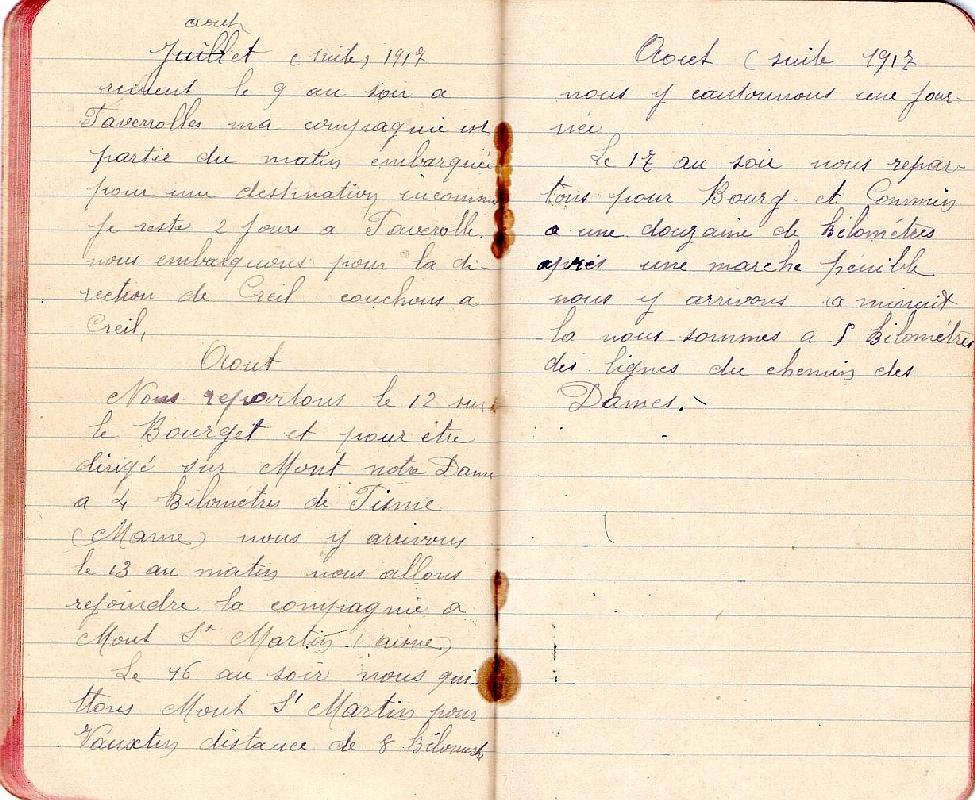 aout
Juillet (suite) 1917
revient le 9 au soir a
Taverolles ma compagnie est
partie du matin embarquée
pour une destination inconnu
je reste 2 jours a Taverolle.
nous embarquons pour la di-
rection de Creil couchons a
Creil,
Aout
Nous repartons le 12 sur
le Bourget et pour etre
dirigé sur Mont notre Dame
a 4 kilometres de Fisme
(Marne) nous y arrivons
le 13 au matin nous allons
rejoindre la compagnie a
Mont St Martin (aisne)
Le 16 au soir nous qui-
ttons Mont St Martin pour
Vauxtin distance de 8 kilometr
Aout (suite 1917
nous y cantonnons une jour-
née
Le 17 au soir nous repar-
tons pour Bourg et Commin
a une douzaine de kilométres
aprés une marche penible
nous y arrivons a minuit
la nous sommes a 8 kilométres
des lignes du chemin des
Dames.-